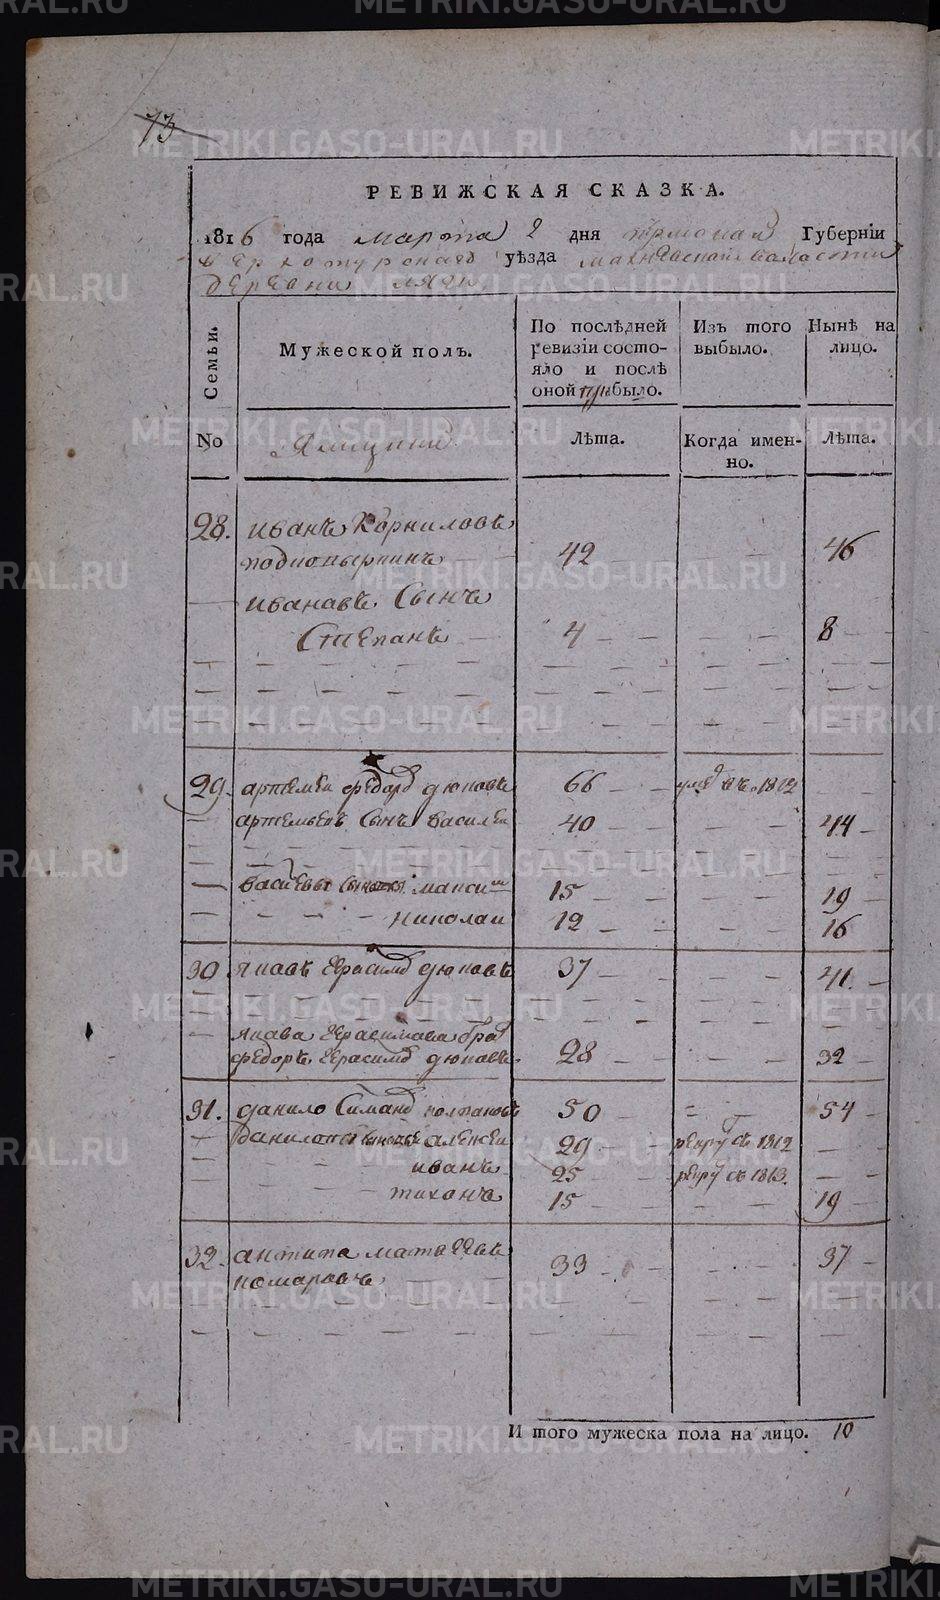 73
РЕВИЖСКАЯ СКАЗКА.
1816 года марта 2 дня Пермской Губерніи
Верхотурскаго уѣзда Махневской валасти
деревни
Семьи. Мужеской полъ. По послѣдней ревизіи состояло и послѣ оной прибыло. Изъ того выбыло. Нынѣ на лицо.
No Лѣта. Когда именно. Лѣта.
28. иванъ Корниловъ
подкопыркинъ 42 46
ивановъ Сынъ
Степанъ 4 8
29. артемеи федор дюковъ 66 умре въ 1812
артемьевъ Сынъ василеи 40 44
васильевы максим 15 19
николаи 12 16
30 яковъ Герасимо дюковъ 37 41
якова Герасимава брат
федоръ Герасимо дюковъ 28 32
31. данило Симано колпаковъ 50 54
даниловы сыновья алексеи 29 рекру въ 1812
иванъ 25 рекру въ 1813.
тихонъ 15 19
32. антипа матвеевъ 33 37
комаровъ
И того мужеска пола на лицо. 10
METRIKI.GASO-URAL.RU